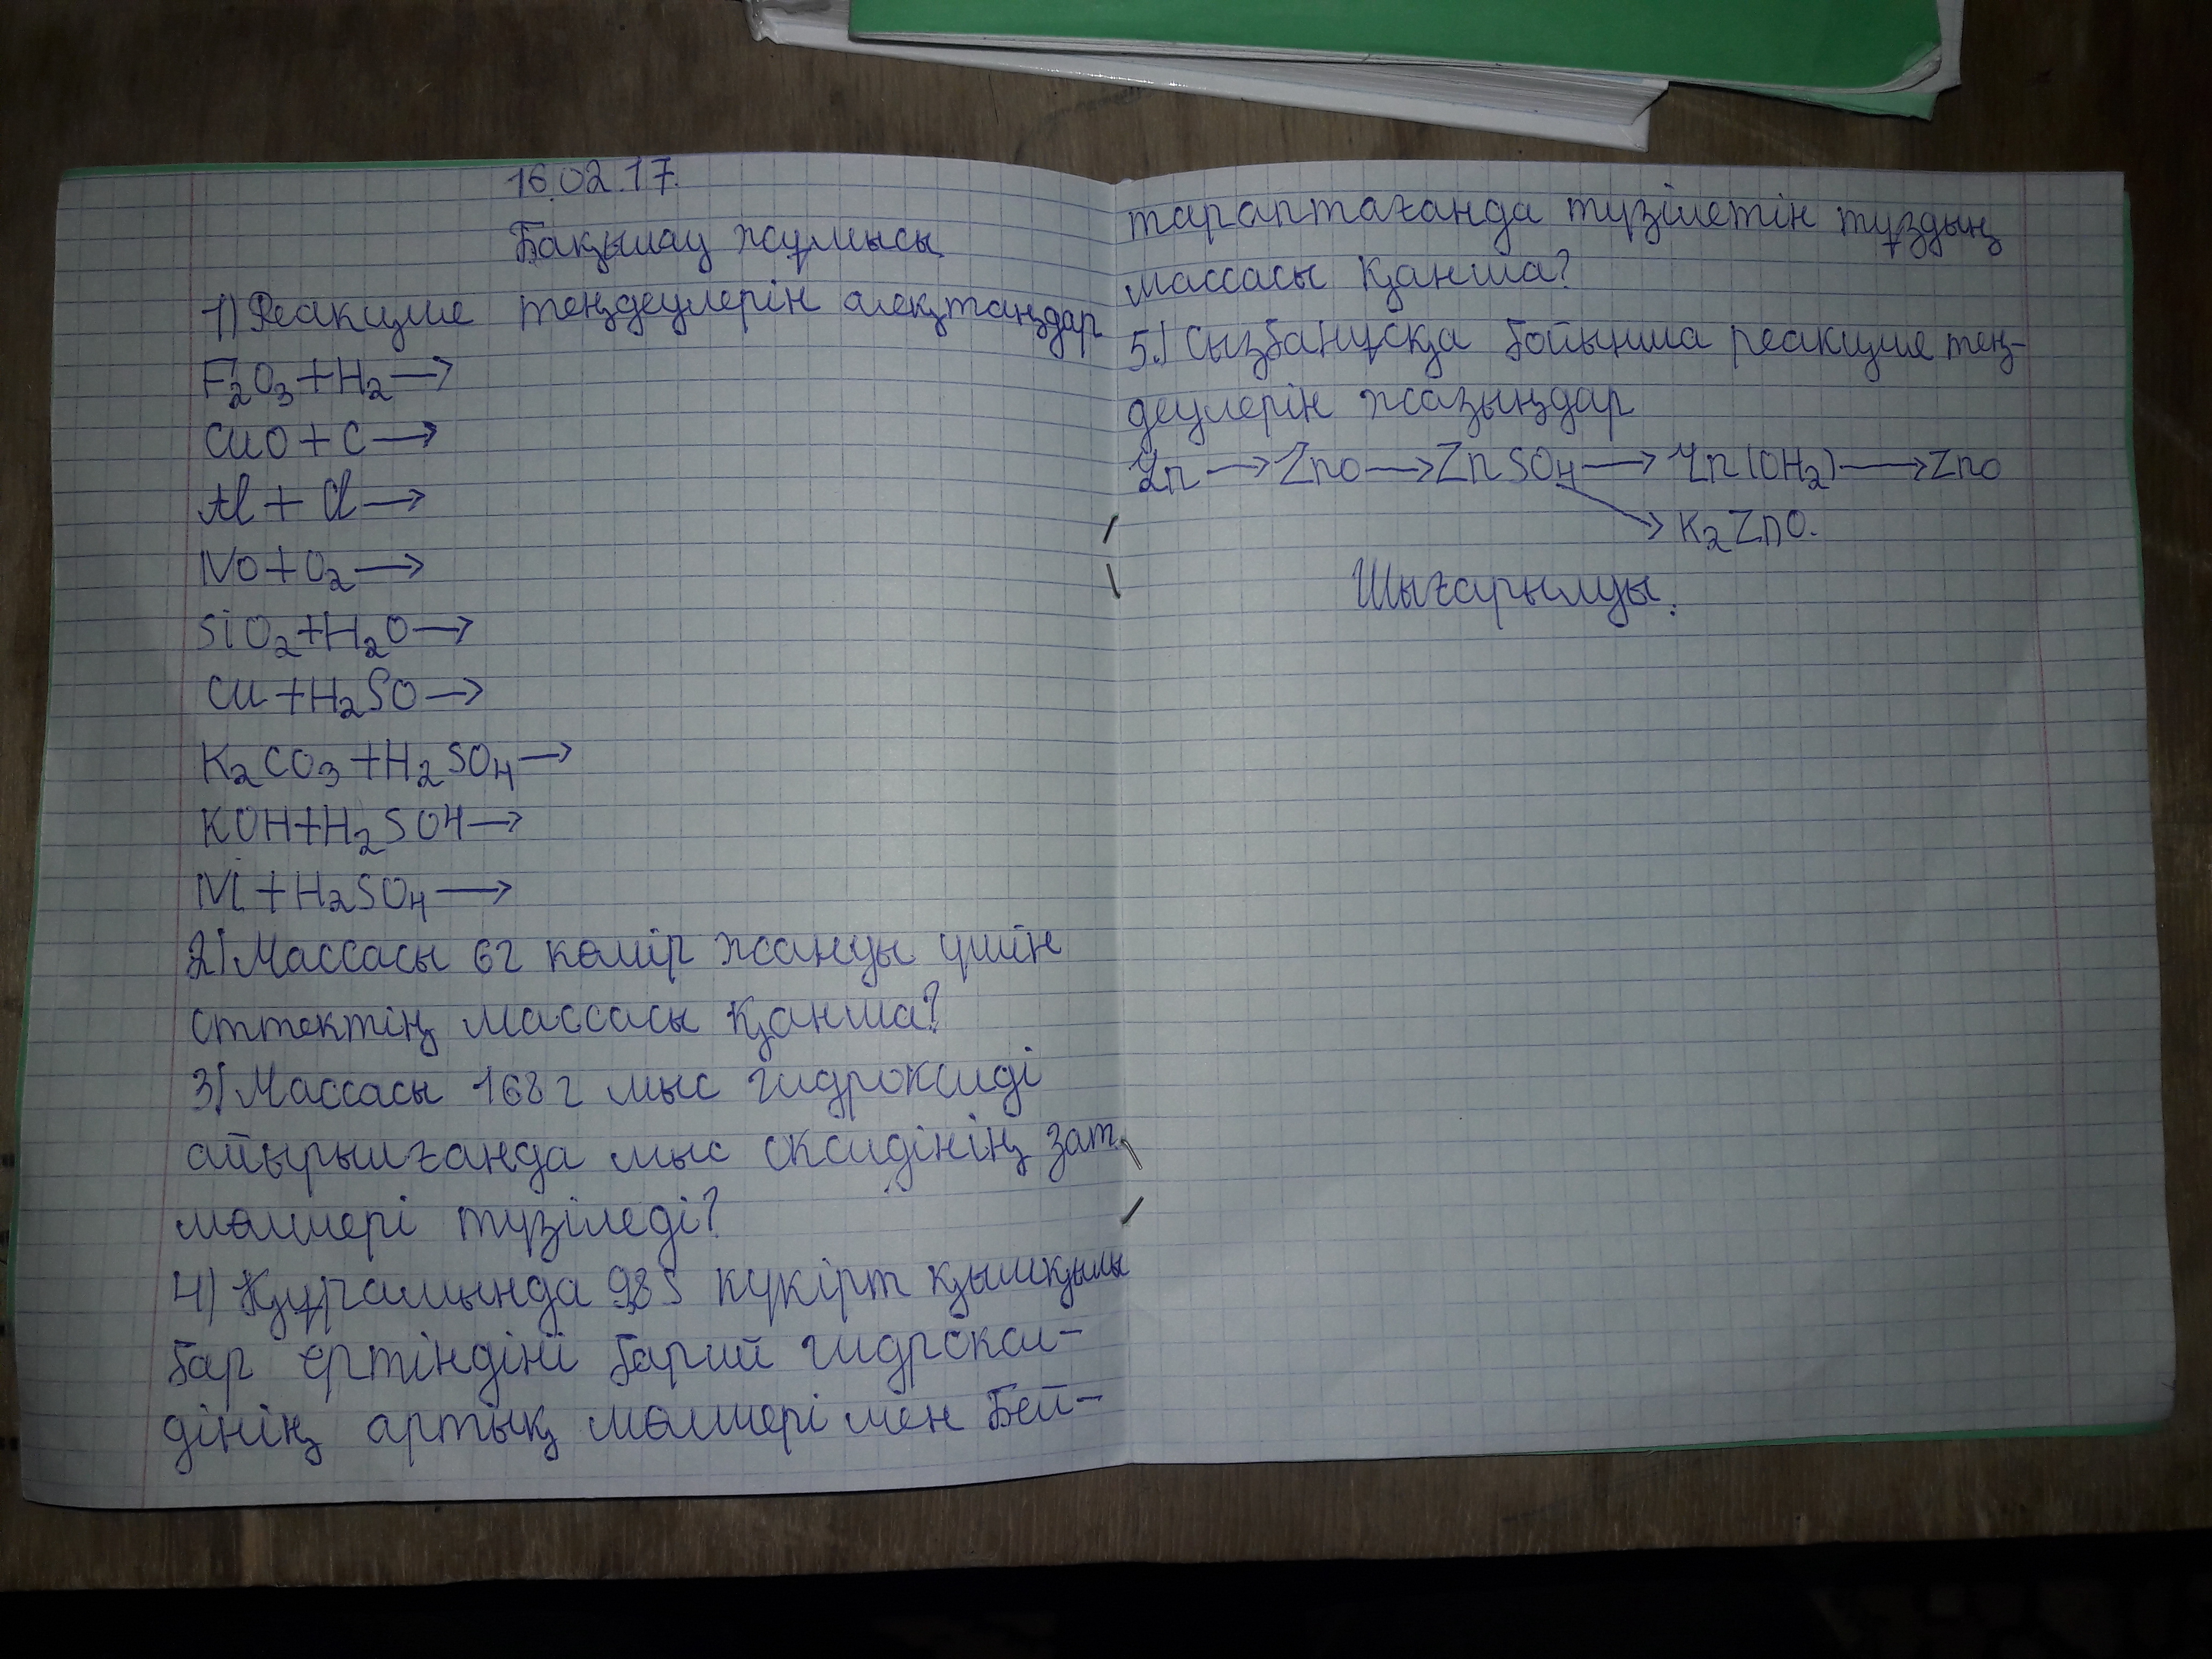 16.02.17.
Бақылау жұмысы
1) Реакция теңдеулерін аяқтаңдар
F2O3+H2→
CuO+C→
Al+Cl→
NO+O2→
SiO2+H2O→
Cu+H2SO→
K2CO3+H2SO4→
KOH+H2SO4→
Ni+H2SO4→
2) Массасы 6г көмір жануы үшін
оттектің массасы қанша?
3) Массасы 168г мыс гидроксиді
айырылғанда мыс оксидінің зат
мөлшері түзіледі?
4) Құрамында 9,8 күкірт қышқылы
бар ерітіндіні барий гидрокси-
дінің артық мөлшері мен бей-
тараптағанда түзілетін тұздың
массасы қанша?
5.) Сызбанұсқа бойынша реакция тең-
деулерін жазыңдар
Zn→ZnO→ZnSO4→Zn(OH2)→ZnO
→K2ZnO.
Шығарылуы.